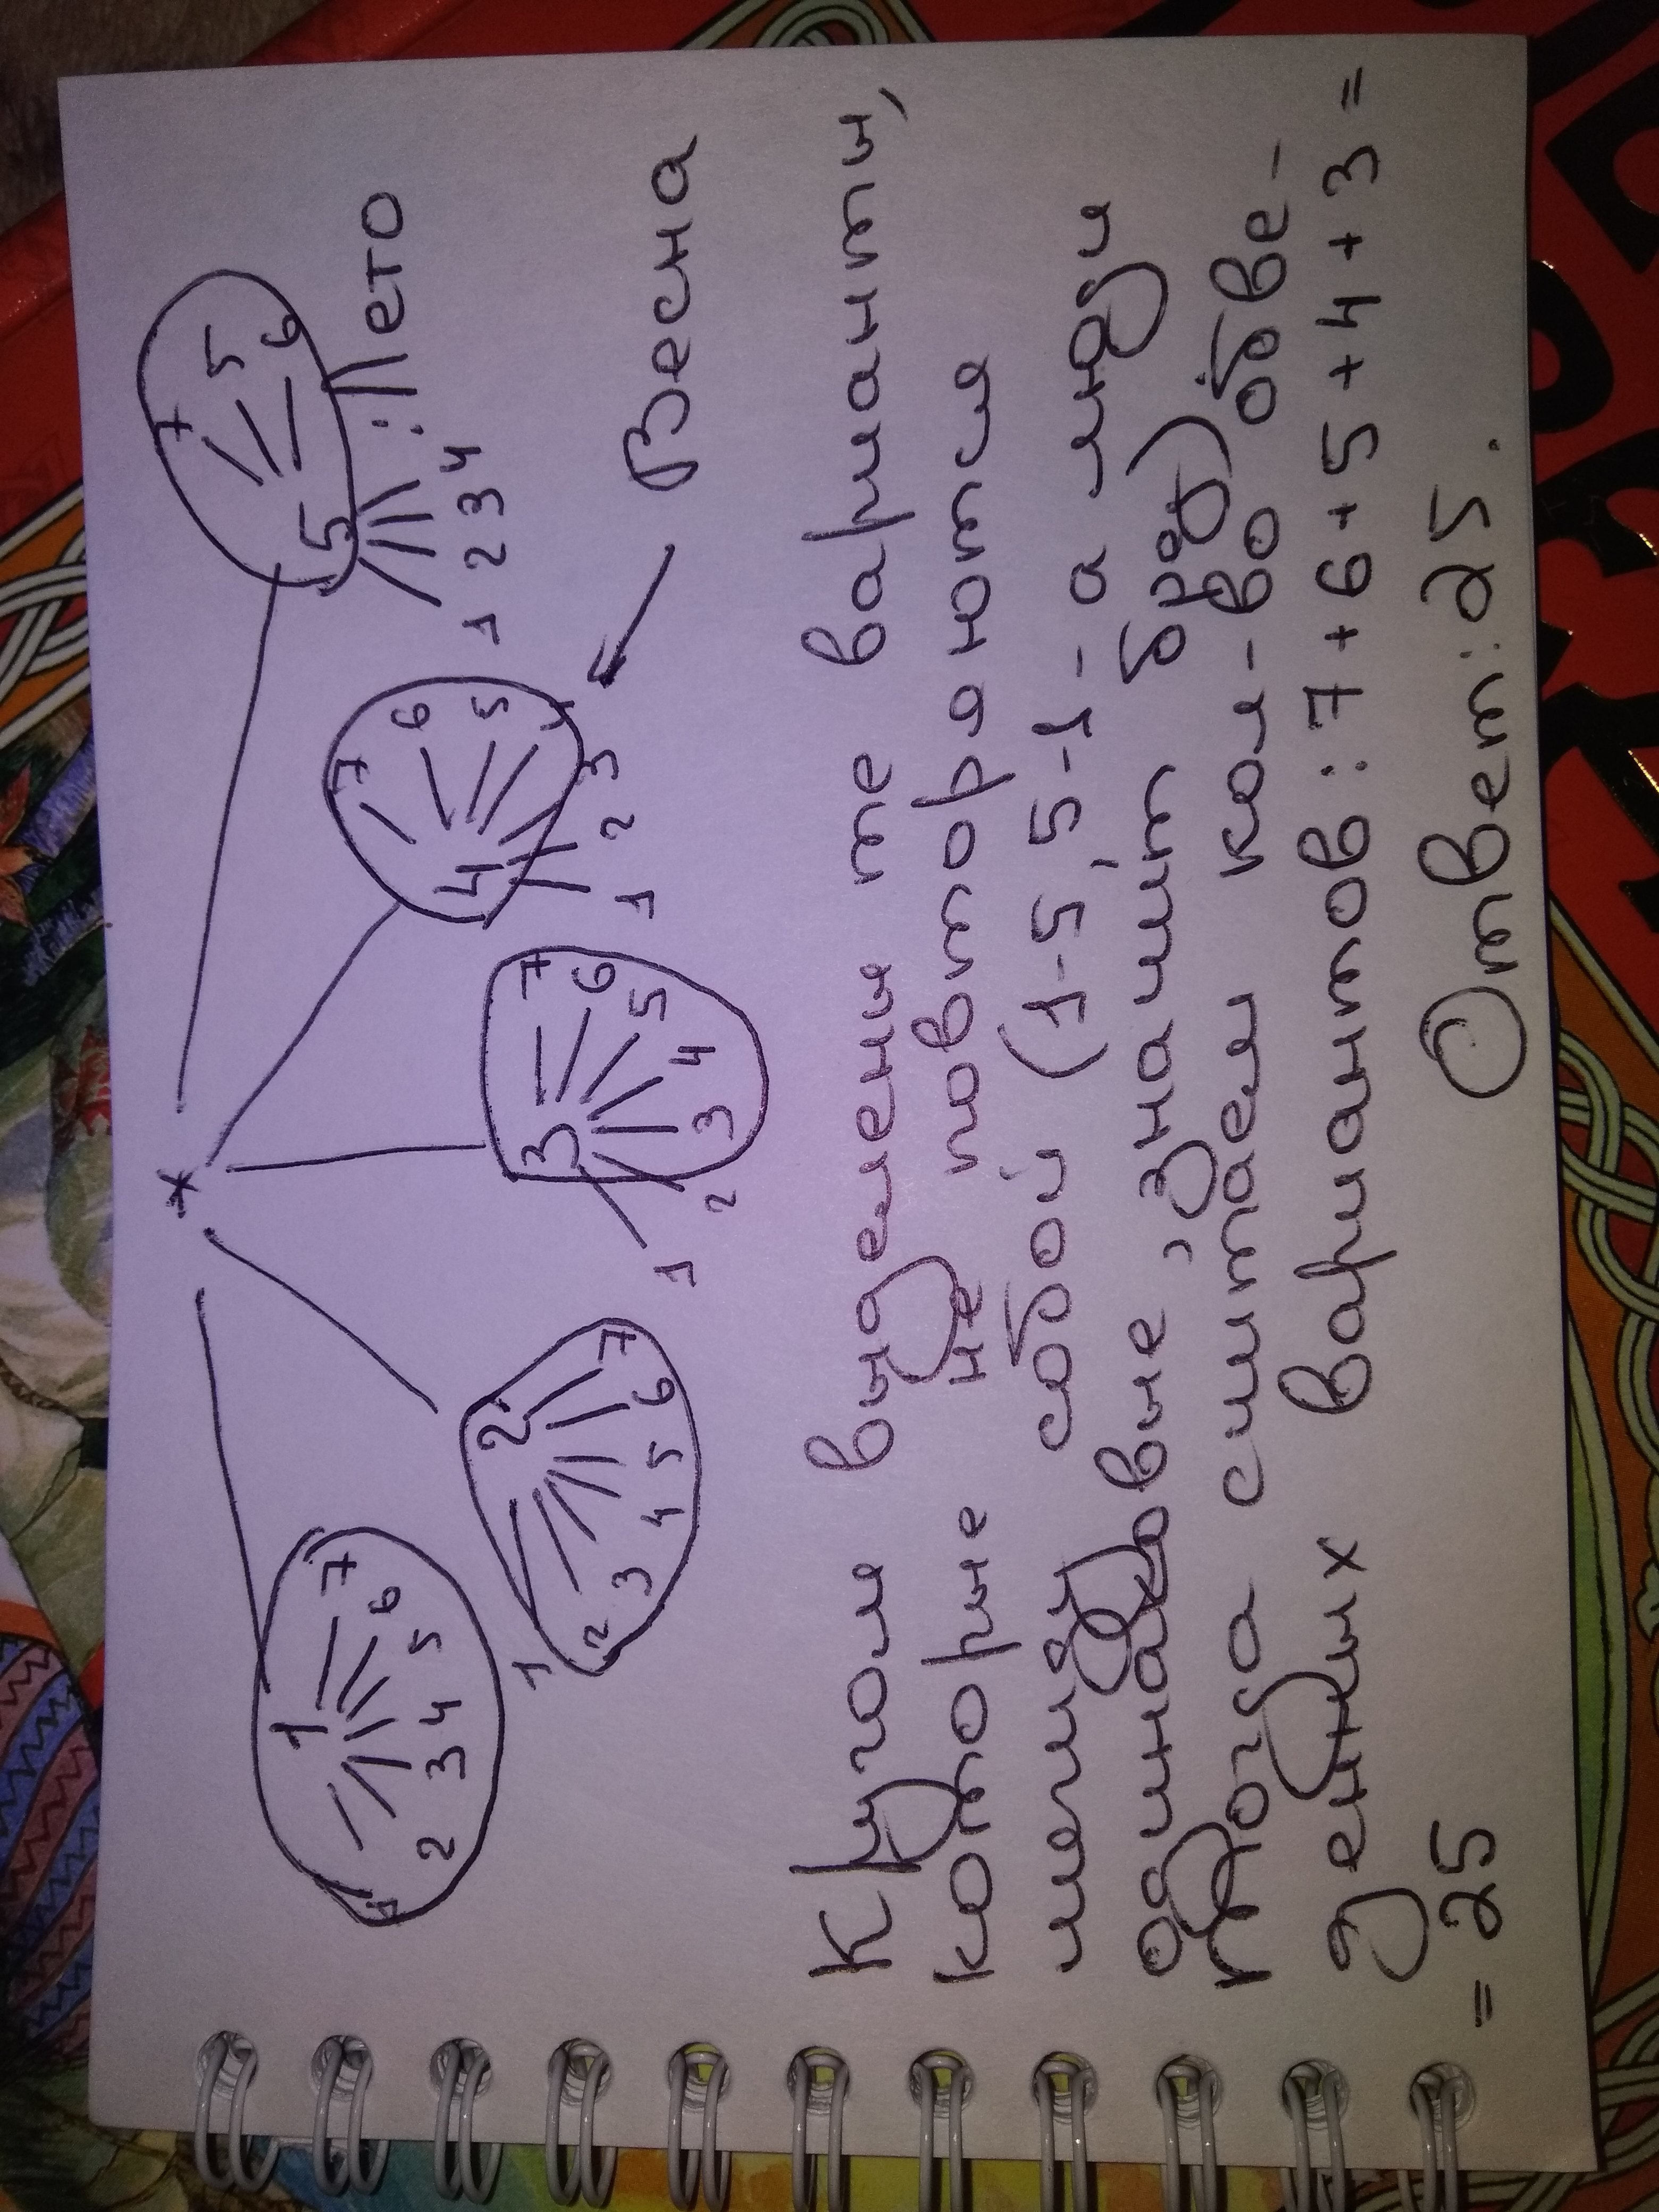 *
1 2 3 4 5
1 2 3 4 5 6 7
1 2 3 4 5 6 7
1 2 3 4 5 6 7
1 2 3 4 5 6 7
1 2 3 4 : Лето 5 6 7
Весна
Кругом выделены те варианты,
которые не повторяются
между собой (1-5, 5-1 - а люди
одинаковые, значит бред)
Тогда считаем кол-во обве-
денных вариантов: 7+6+5+4+3=
=25 Ответ: 25.